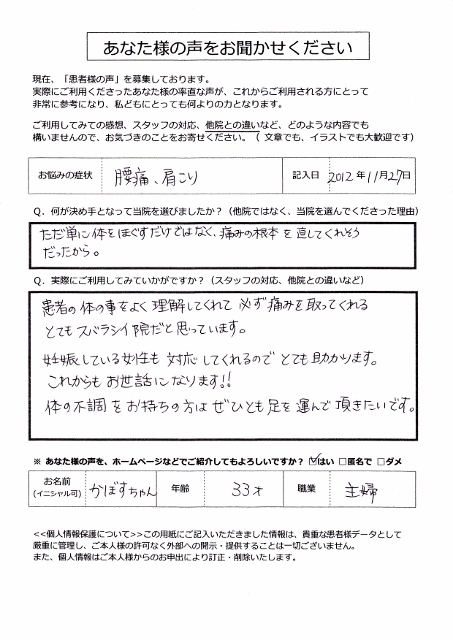 あなた様の声をお聞かせください
現在、「患者様の声」を募集しております。
実際にご利用くださったあなた様の率直な声が、これからご利用される方にとって
非常に参考になり、私どもにとっても何よりの力となります。
ご利用してみての感想、スタッフの対応、他院との違いなど、どのような内容でも
構いませんので、お気づきのことをお寄せください。（ 文章でも、イラストでも大歓迎です）
お悩みの症状 腰痛、肩こり 記入日 2012 年 11月 27日
Q．何が決め手となって当院を選びましたか？（他院ではなく、当院を選んでくださった理由）
ただ単に体をほぐすだけではなく、痛みの根本を直してくれそう
だったから。
Q．実際にご利用してみていかがですか？（スタッフの対応、他院との違いなど）
患者の体の事をよく理解してくれて必ず痛みを取ってくれる
とてもスバラシイ院だと思っています。
妊娠している女性も対応してくれるのでとても助かります。
これからもお世話になります!!
体の不調をお持ちの方はぜひとも足を運んで頂きたいです。
※ あなた様の声を、ホームページなどでご紹介してもよろしいですか？ ☑はい □匿名で □ダメ
お名前
(イニシャル可) かぼすちゃん 年齢 33才 職業 主婦
<<個人情報保護について>>この用紙にご記入いただきました情報は、貴重な患者様データとして
厳重に管理し、ご本人様の許可なく外部への開示・提供することは一切ございません。
また、個人情報はご本人様からのお申出により訂正・削除いたします。